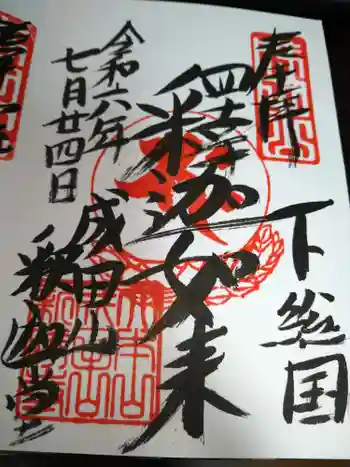 奉拝
下総国
釋迦如来
令和六年
七月廿四日
成田山
釈迦堂